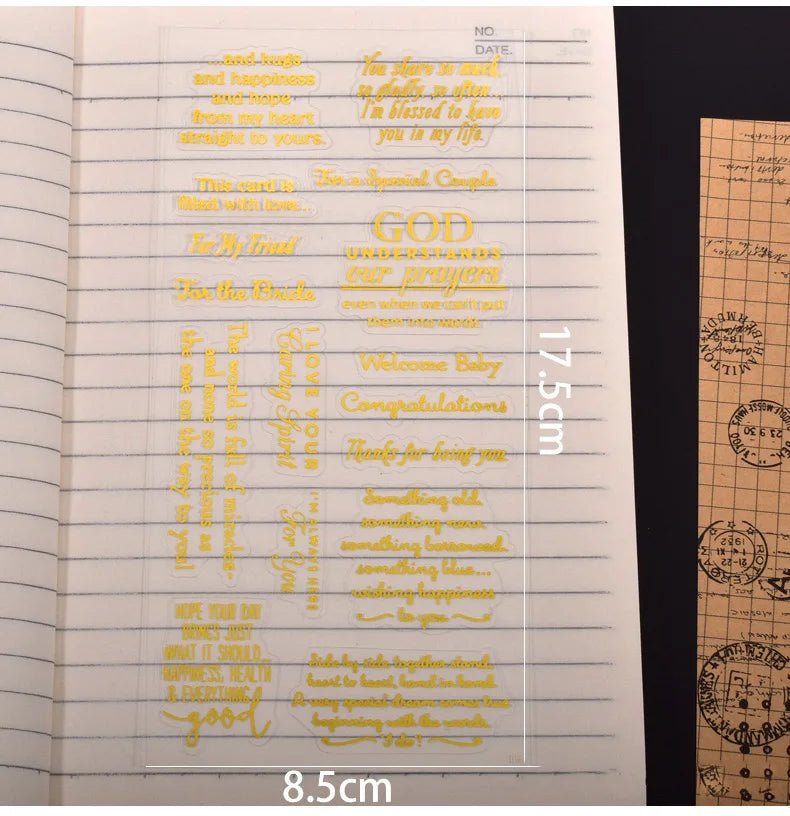 NO.
DATE.
...and hugs
and happiness
and hope
from my heart
straight to yours.
You share so much,
so gladly, so often...
I'm blessed to have
you in my life.
This card is
filled with love...
For a Special Couple
For My Friend
GOD
UNDERSTANDS
our prayers
even when we can't put
them into words.
For the Bride
The world is full of miracles-
and none so precious as
the one on the way to you!
I LOVE YOUR
Caring Spirit
Welcome Baby
Congratulations
Thanks for being you
I'M ALWAYS HERE
For You
Something old,
something new,
something borrowed,
something blue...
wishing happiness
to you
HOPE YOUR DAY
BRINGS JUST
WHAT IT SHOULD...
HAPPINESS, HEALTH
& EVERYTHING
good
Side by side together stand,
heart to heart, hand in hand.
A very special dream comes true
beginning with the words,
I do!
17.5cm
8.5cm
HAMILTON
BERMUDA
23 9 30
ROTTERDAM
21-22
1932